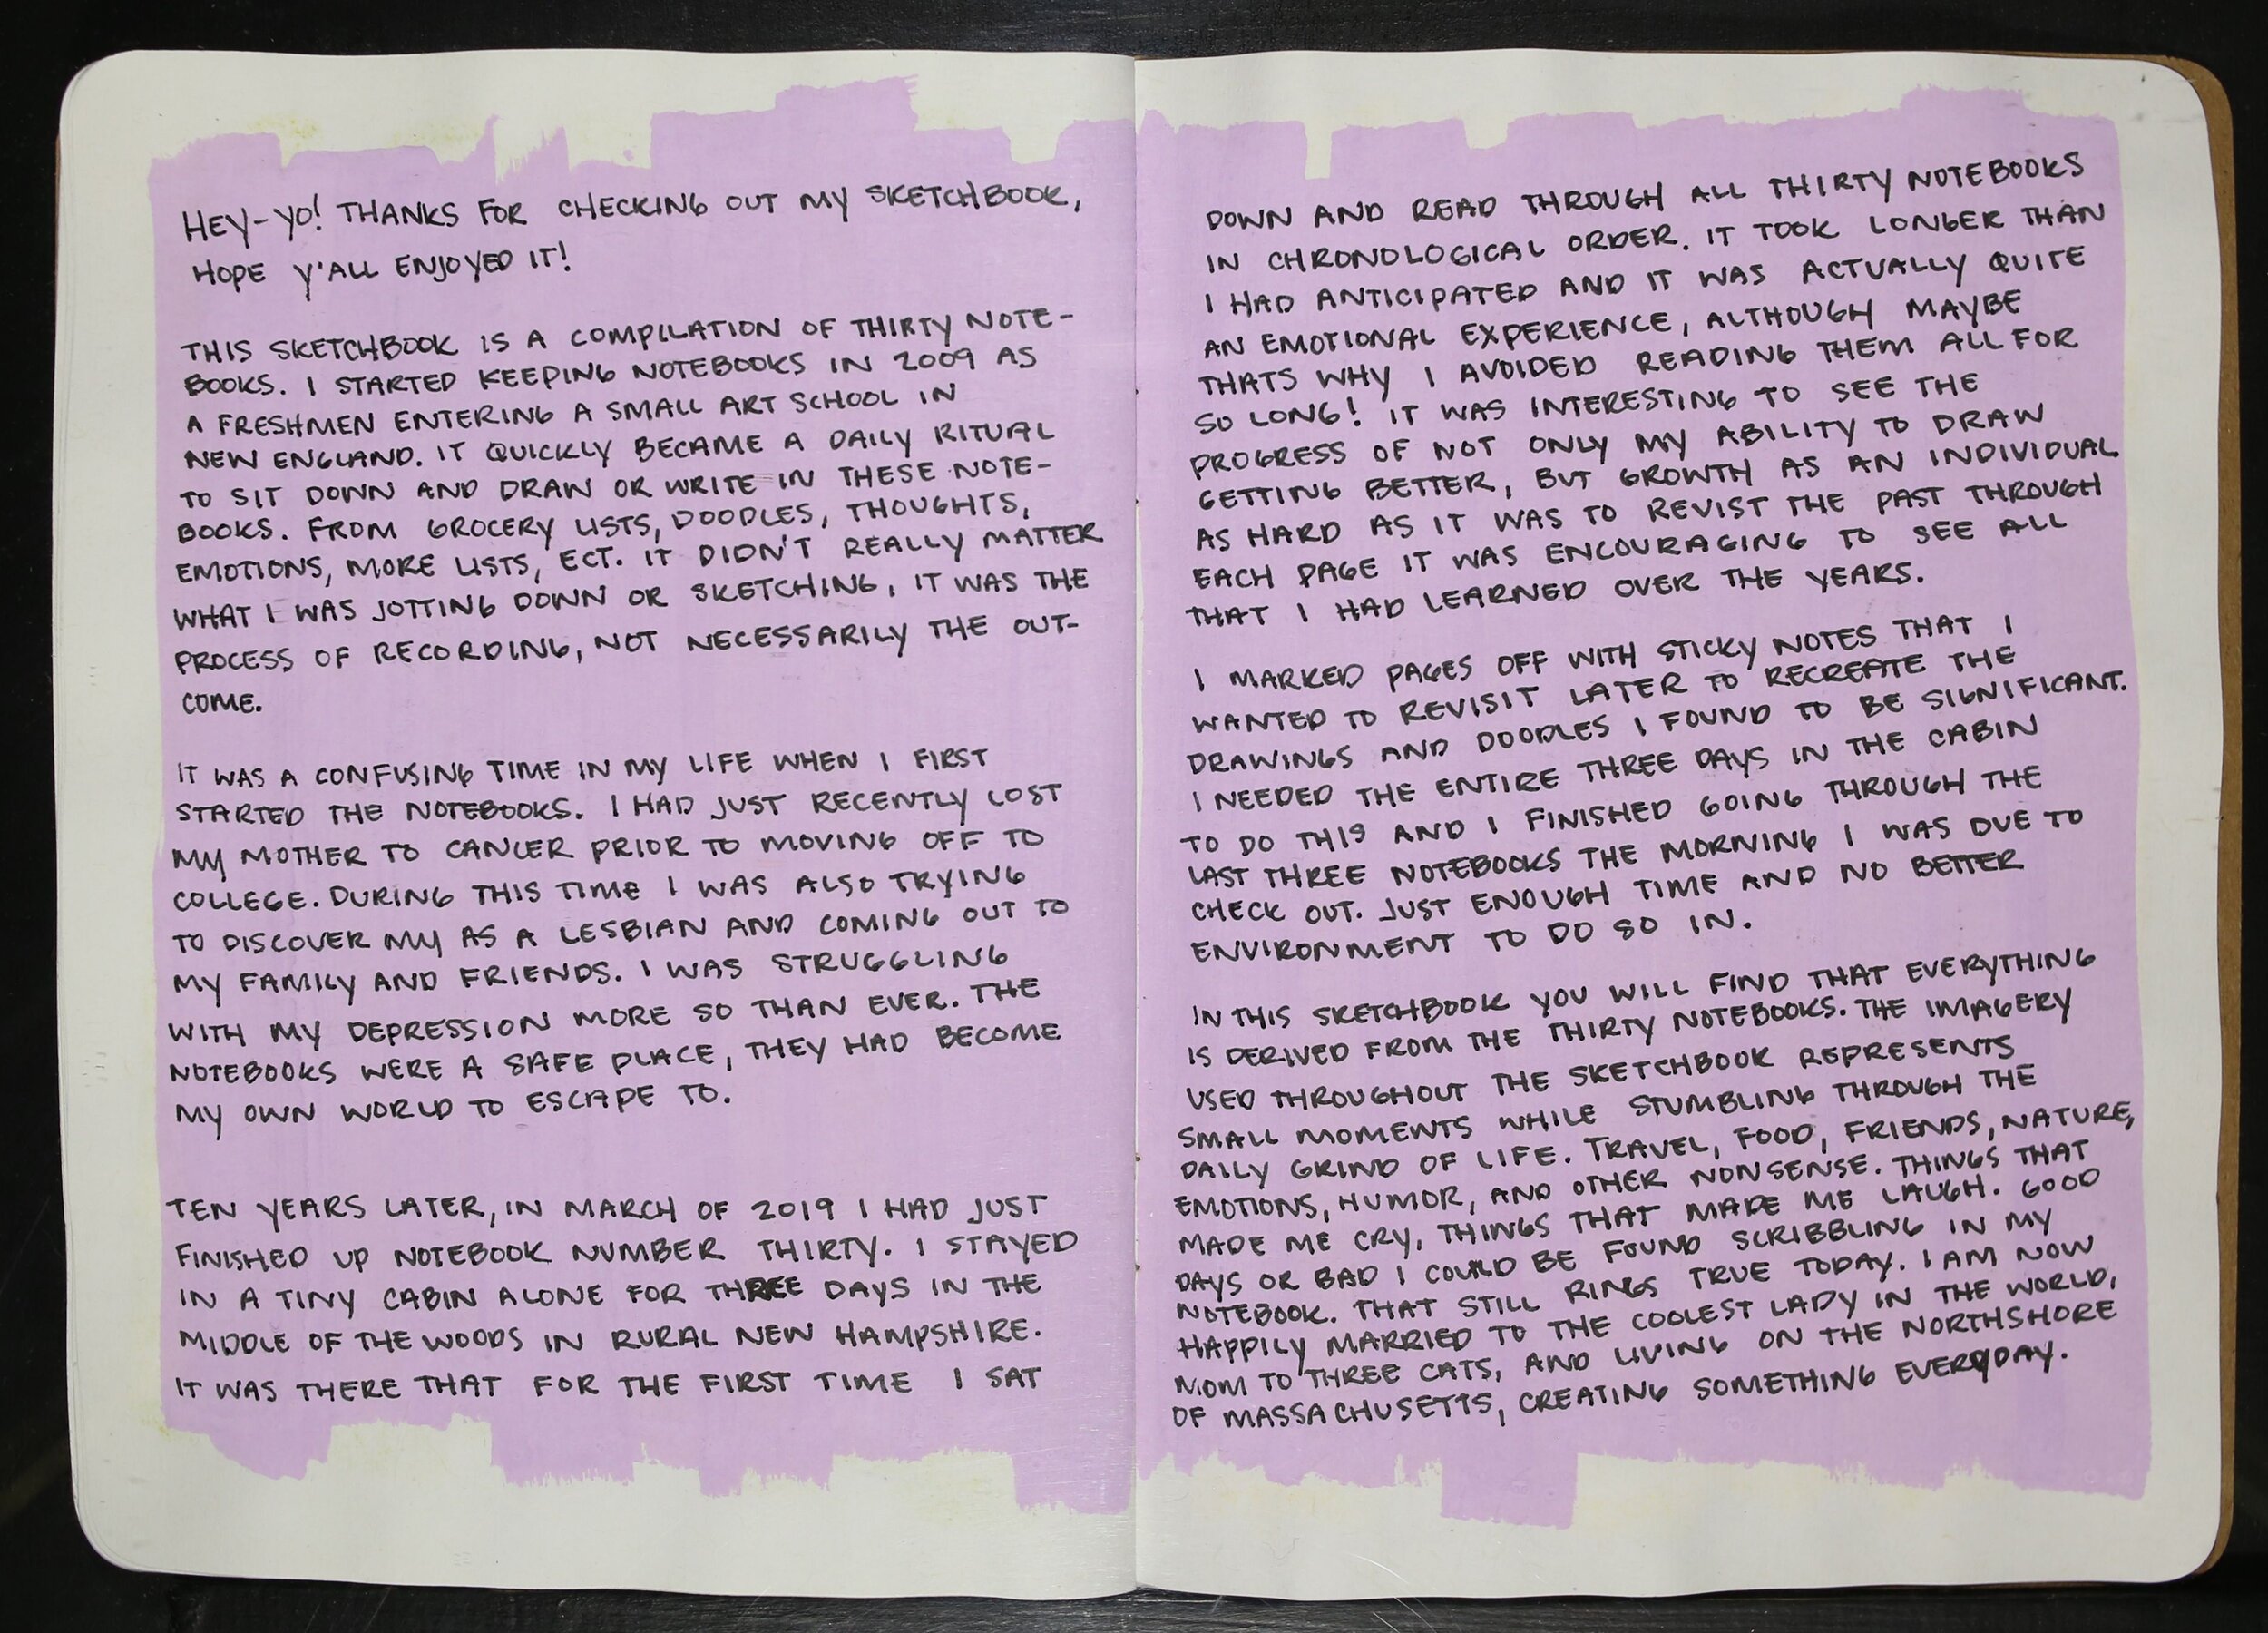 HEY-YO! THANKS FOR CHECKING OUT MY SKETCHBOOK,
HOPE Y'ALL ENJOYED IT!
THIS SKETCHBOOK IS A COMPILATION OF THIRTY NOTE-
BOOKS. I STARTED KEEPING NOTEBOOKS IN 2009 AS
A FRESHMEN ENTERING A SMALL ART SCHOOL IN
NEW ENGLAND. IT QUICKLY BECAME A DAILY RITUAL
TO SIT DOWN AND DRAW OR WRITE IN THESE NOTE-
BOOKS. FROM GROCERY LISTS, DOODLES, THOUGHTS,
EMOTIONS, MORE LISTS, ECT. IT DIDN'T REALLY MATTER
WHAT I WAS JOTTING DOWN OR SKETCHING, IT WAS THE
PROCESS OF RECORDING, NOT NECESSARILY THE OUT-
COME.
IT WAS A CONFUSING TIME IN MY LIFE WHEN I FIRST
STARTED THE NOTEBOOKS. I HAD JUST RECENTLY LOST
MY MOTHER TO CANCER PRIOR TO MOVING OFF TO
COLLEGE. DURING THIS TIME I WAS ALSO TRYING
TO DISCOVER MY AS A LESBIAN AND COMING OUT TO
MY FAMILY AND FRIENDS. I WAS STRUGGLING
WITH MY DEPRESSION MORE SO THAN EVER. THE
NOTEBOOKS WERE A SAFE PLACE, THEY HAD BECOME
MY OWN WORLD TO ESCAPE TO.
TEN YEARS LATER, IN MARCH OF 2019 I HAD JUST
FINISHED UP NOTEBOOK NUMBER THIRTY. I STAYED
IN A TINY CABIN ALONE FOR THREE DAYS IN THE
MIDDLE OF THE WOODS IN RURAL NEW HAMPSHIRE.
IT WAS THERE THAT FOR THE FIRST TIME I SAT
DOWN AND READ THROUGH ALL THIRTY NOTEBOOKS
IN CHRONOLOGICAL ORDER. IT TOOK LONGER THAN
I HAD ANTICIPATED AND IT WAS ACTUALLY QUITE
AN EMOTIONAL EXPERIENCE, ALTHOUGH MAYBE
THATS WHY I AVOIDED READING THEM ALL FOR
SO LONG! IT WAS INTERESTING TO SEE THE
PROGRESS OF NOT ONLY MY ABILITY TO DRAW
GETTING BETTER, BUT GROWTH AS AN INDIVIDUAL
AS HARD AS IT WAS TO REVIST THE PAST THROUGH
EACH PAGE IT WAS ENCOURAGING TO SEE ALL
THAT I HAD LEARNED OVER THE YEARS.
I MARKED PAGES OFF WITH STICKY NOTES THAT I
WANTED TO REVISIT LATER TO RECREATE THE
DRAWINGS AND DOODLES I FOUND TO BE SIGNIFICANT.
I NEEDED THE ENTIRE THREE DAYS IN THE CABIN
TO DO THIS AND I FINISHED GOING THROUGH THE
LAST THREE NOTEBOOKS THE MORNING I WAS DUE TO
CHECK OUT. JUST ENOUGH TIME AND NO BETTER
ENVIRONMENT TO DO SO IN.
IN THIS SKETCHBOOK YOU WILL FIND THAT EVERYTHING
IS DERIVED FROM THE THIRTY NOTEBOOKS. THE IMAGERY
USED THROUGHOUT THE SKETCHBOOK REPRESENTS
SMALL MOMENTS WHILE STUMBLING THROUGH THE
DAILY GRIND OF LIFE. TRAVEL, FOOD, FRIENDS, NATURE,
EMOTIONS, HUMOR, AND OTHER NONSENSE. THINGS THAT
MADE ME CRY, THINGS THAT MADE ME LAUGH. GOOD
DAYS OR BAD I COULD BE FOUND SCRIBBLING IN MY
NOTEBOOK. THAT STILL RINGS TRUE TODAY. I AM NOW
HAPPILY MARRIED TO THE COOLEST LADY IN THE WORLD,
MOM TO THREE CATS, AND LIVING ON THE NORTHSHORE
OF MASSACHUSETTS, CREATING SOMETHING EVERYDAY.